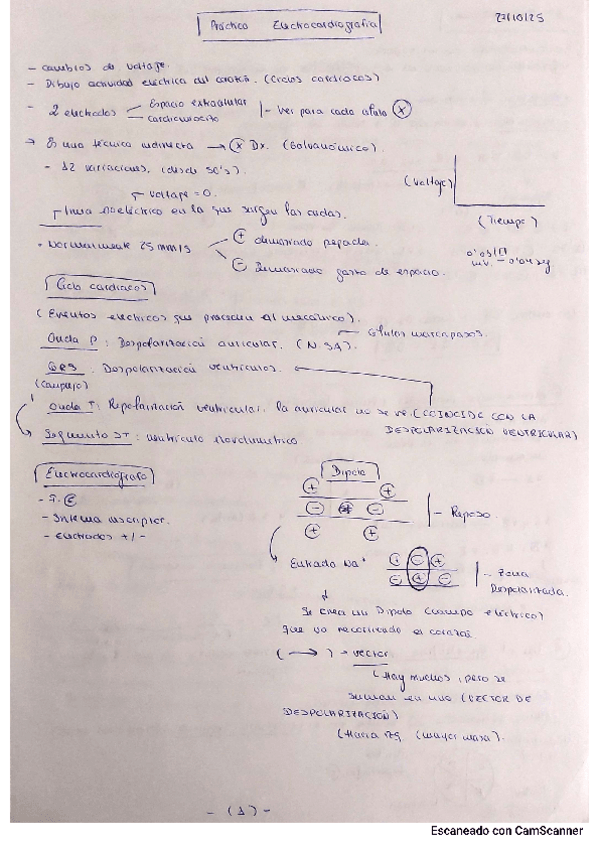 Práctica Electrocardiografía
27/10/25
- Cambios de voltaje.
- Dibujo actividad eléctrica del corazón. (Ciclos cardíacos)
- 2 electrodos
Espacio extracelular
cardiomiocito
- Ver para cada
→ Es una técnica indirecta → (x) Dx. (Galvanómico).
- 12 variaciones,
Voltaje = 0.
línea isoeléctrica en la que surgen las ondas.
(Voltaje)
(Tiempo)
- Normalmente 25 mm/s
+ demasiado pegada.
- Demasiado gasto de espacio.
Ciclo cardíacos
(Eventos eléctricos que preceden al mecánico).
células marcapasos.
Onda P : Despolarización auricular. (N.SA)
QRS : Despolarización ventrículos.
(Complejo)
Onda T : Repolarización ventricular. la auricular no se ve. (COINCIDE CON LA
DESPOLARIZACIÓN VENTRICULAR)
Segmento ST : ventrículo
Electrocardiógrafo
- Sistema inscriptor.
- Electrodos +/-
Dipolo
+ +
- Reposo.
+ +
Entrada Na+
- Zona
Despolarizada.
Se crea un Dipolo (campo eléctrico)
que va recorriendo el corazón.
( → ) → vector
(Hay muchos, pero se
suman en uno (VECTOR DE
DESPOLARIZACIÓN)
(Hacia izq (mayor masa).
- (1) -
Escaneado con CamScanner